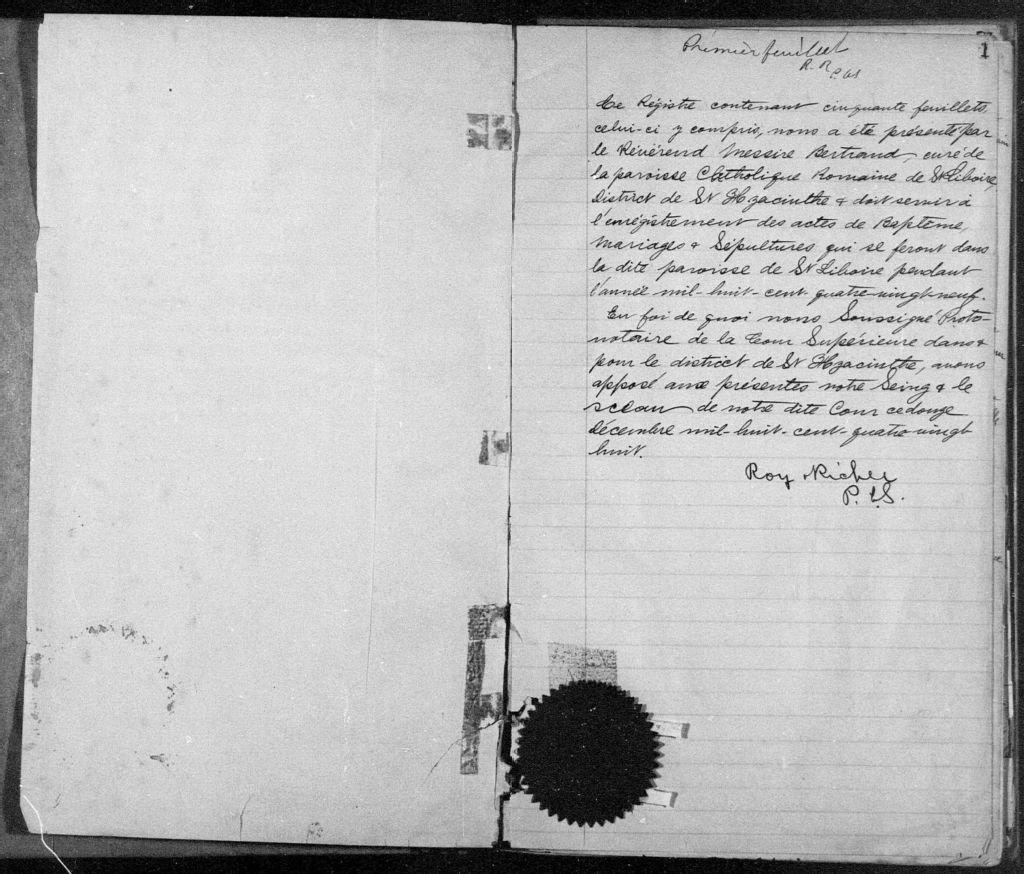 1
Premier feuillet
R. R.
P.C.S
Ce Régistre contenant cinquante feuillets,
celui-ci y compris, nous a été présenté par
le Révérend Messire Bertrand, curé de
la paroisse Catholique Romaine de St Liboire,
District de St Hyacinthe & doit servir à
l'enrégistrement des actes de Baptême,
Mariages & Sépultures qui se feront dans
la dite paroisse de St Liboire pendant
l'année mil-huit-cent-quatre-vingt-neuf.
En foi de quoi nous Soussigné Proto-
notaire de la Cour Supérieure dans &
pour le district de St Hyacinthe, avons
apposé aux présentes notre Seing & le
sceau de notre dite Cour ce douze
Décembre mil-huit-cent-quatre-vingt
huit.
Roy & Richer
P.C.S.